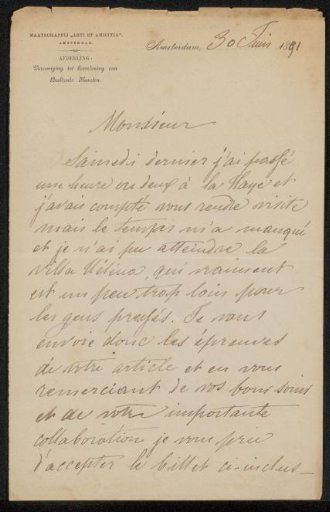 MAATSCHAPPIJ „ARTI ET AMICITIÆ”.
AMSTERDAM.
AFDEELING:
Vereeniging tot Bevordering van
Beeldende Kunsten.
Amsterdam, 30 Juin 1891
Monsieur
Samedi dernier j'ai passé
une heure ou deux à la Haye et
j'avais compté vous rendre visite
mais le temps m'a manqué
et je n'ai pu atteindre la
villa Héléna, qui vraiment
est un peu trop loin pour
les gens pressés. Je vous
envoie donc les épreuves
de votre article et en vous
remerciant de vos bons soins
et de votre importante
collaboration je vous prie
d'accepter le billet ci-inclus_